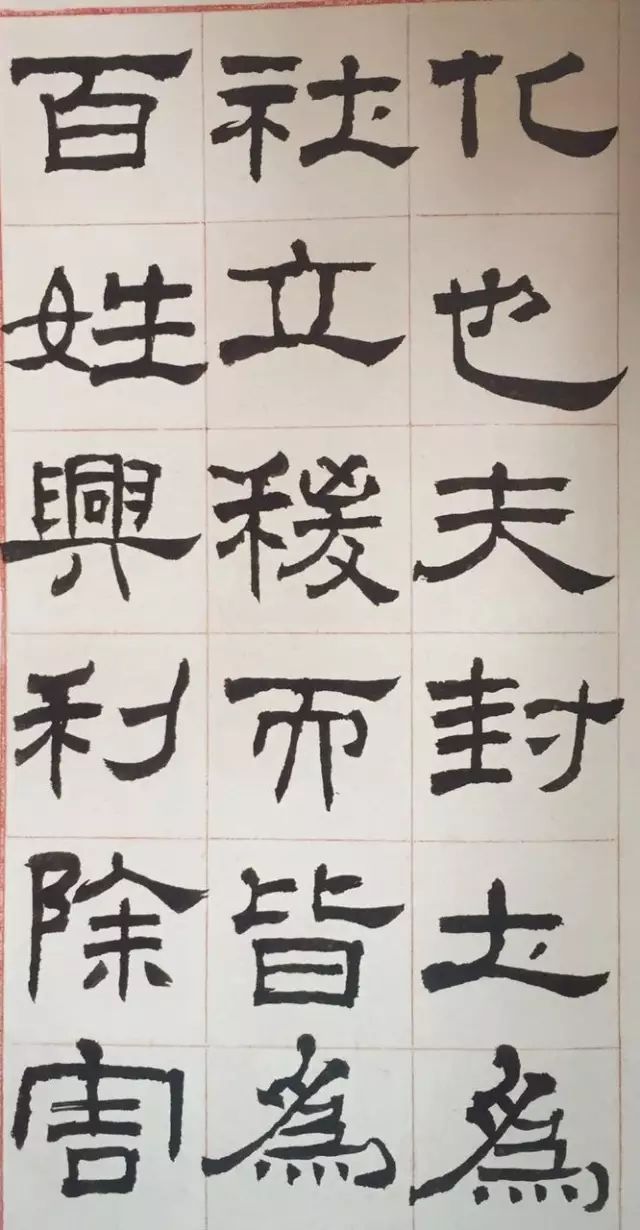 化也夫封土為
社立稷而皆為
百姓興利除害